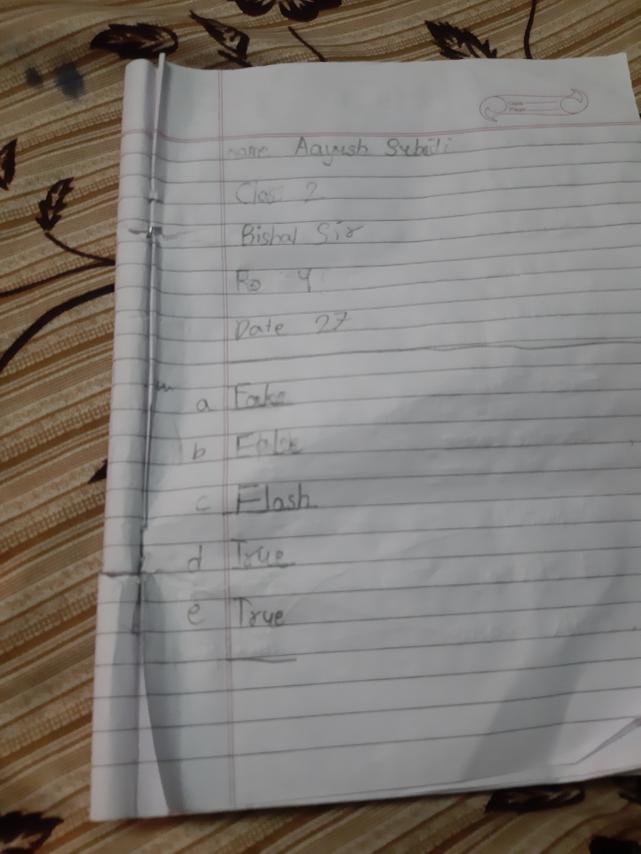 name Aayush Subedi
Clas 2
Bishal Sir
Ro 4
Date 27
a Fake
b
c Flash
d True
e True